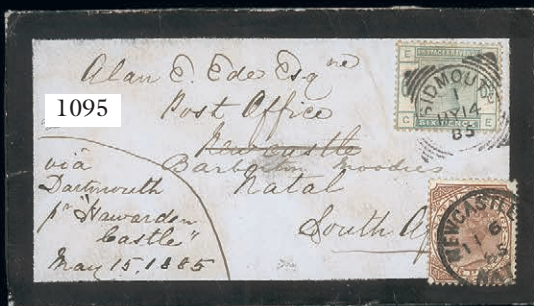 Alan E. Ede Esqre
Post Office
Newcastle
Barberton Moodies
Natal
South A
1095
via
Dartmouth
pr "Hawarden
Castle"
May 15, 1885
POSTAGE & REVENUE
SIXPENCE
E
C E
SIDMOUTH
1
MY 14
85
NEWCASTLE
11 6
85
NATAL